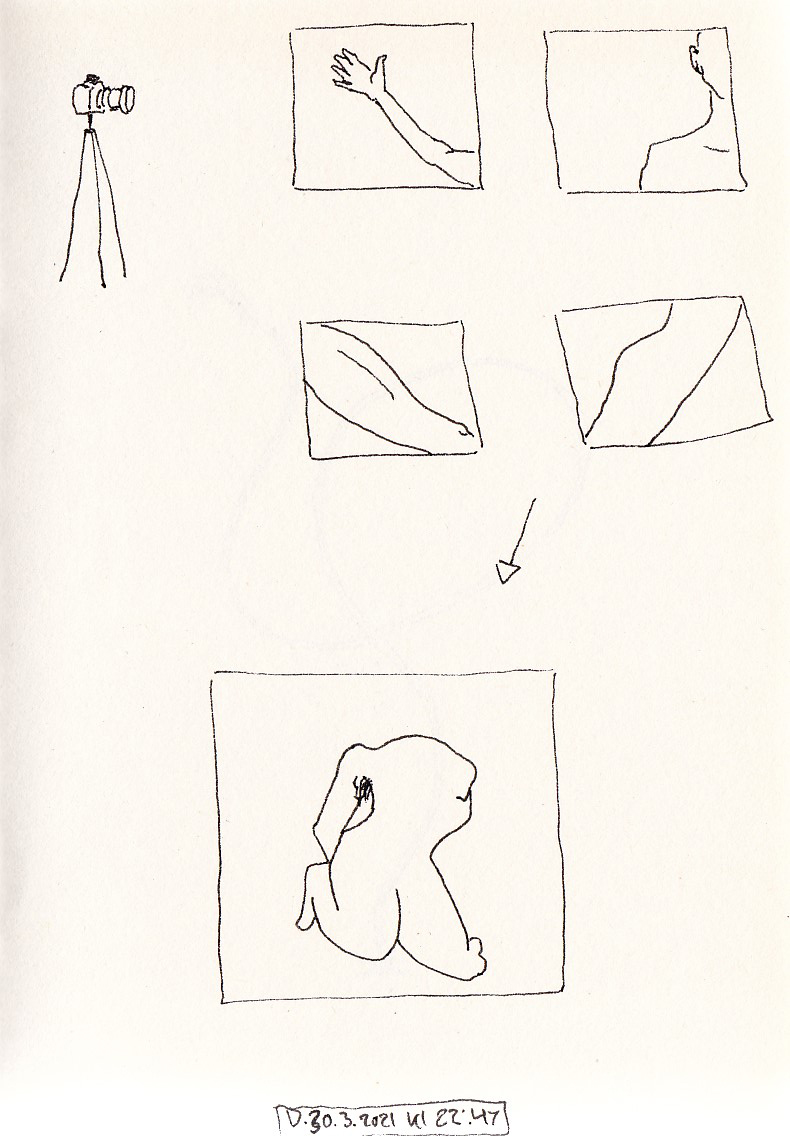 D.30.3.2021 kl 22:47